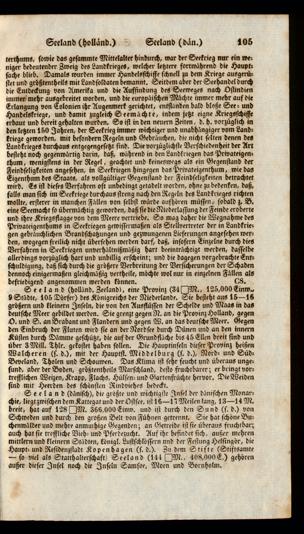 Seeland (holländ.) Seeland (dän.) 105
terthums, sowie das gesammte Mittelalter hindurch, war der Seekrieg nur ein we-
niger bedeutender Zweig des Landkrieges, welcher letztere fortwährend die Haupt-
sache blieb. Damals wurden immer Handelsschiffe schnell zu dem Kriege ausgerü-
stet und größtentheils mit Landsoldaten bemannt. Seitdem aber der Seehandel durch
die Entdeckung von Amerika und die Auffindung des Seeweges nach Ostindien
immer mehr ausgebreitet worden, und die europäischen Mächte immer mehr auf die
Erlangung von Colonien ihr Augenmerk gerichtet, entstanden bald bloße See- und
Handelskriege, und damit zugleich Seemächte, indem jetzt eigne Kriegsschiffe
erbaut und bereit gehalten wurden. So ist in den neuern Zeiten, d. h. vorzüglich in
den letzten 150 Jahren, der Seekrieg immer wichtiger und unabhängiger vom Land-
kriege geworden, mit besondern Regeln und Gebräuchen, die nicht selten denen des
Landkrieges durchaus entgegengesetzt sind. Die vorzüglichste Verschiedenheit der Art
besteht noch gegenwärtig darin, daß, während in den Landkriegen das Privateigen-
thum, wenigstens in der Regel, geachtet und keineswegs als ein Gegenstand der
Feindseligkeit angesehen, in Seekriegen hingegen das Privateigenthum, wie das
Eigenthum des Staats, als vollgültiger Gegenstand der Feindseligkeiten betrachtet
wird. Es ist dieses Verfahren oft unbedingt getadelt worden, ohne zu bedenken, daß,
falls man sich im Seekriege durchaus streng nach den Regeln des Landkrieges richten
wollte, ersterer in manchen Fällen von selbst würde aufhören müssen, sobald z. B.
eine Seemacht so übermächtig geworden, daß sie die Niederlassung der Feinde eroberte
und ihre Kriegsflagge von dem Meere vertriebe.
Privateigenthums in Seekriegen gewissermaßen als Stellvertreter der in Landkrie-
gen gebräuchlichen Brandschatzungen und gezwungenen Lieferungen angesehen wer-
den, wogegen freilich nicht übersehen werden darf, daß, insofern Einzelne durch dies
Verfahren in Seekriegen unverhältnißmäßig hart beeinträchtigt werden, dasselbe
allerdings vorzüglich hart und unbillig erscheint; und die dagegen vorgebrachte Ent-
schuldigung, daß sich durch die größere Verbreitung der Versicherungen der Schaden
dennoch einigermaßen gleichmäßig vertheile, möchte wol nur in einzelnen Fällen als
befriedigend angenommen werden können. CS.
Seeland (holländ. Zeeland), eine Provinz (34 □M., 125,000 Einw.
9 Städte, 105 Dörfer) des Königreichs der Niederlande. Sie besteht aus 15—16
größern und kleinern Inseln, die von den Ausflüssen der Schelde und Maas in das
deutsche Meer gebildet werden. Sie grenzt gegen N. an die Provinz Holland, gegen
O. und S. an Brabant und Flandern und gegen W. an das deutsche Meer. Gegen
den Einbruch der Fluten wird sie an der Nordsee durch Dünen und an den innern
Küsten durch Dämme geschützt, die auf der Grundfläche bis 45 Ellen breit sind und
über 3 Mill. Thlr. gekostet haben sollen. Die Hauptinseln dieser Provinz heißen
Walcheren (s. d.), mit der Hauptst. Middelburg (s. d.), Nord- und Süd-
Beveland, Tholen und Schouwen. Das Klima ist sehr feucht und überaus unge-
sund, aber der Boden, größtentheils Marschland, desto fruchtbarer; er bringt vor-
trefflichen Weizen, Krapp, Flachs, Hülsen- und Gartenfrüchte hervor. Die Weiden
sind mit Heerden des schönsten Rindviehes bedeckt.
Seeland (dänisch), die größte und wichtigste Insel der dänischen Monar-
chie, liegt zwischen dem Kattegat und der Ostsee, ist 16—17 Meilen lang, 13—14 M.
breit, hat auf 128 □M. 366,000 Einw. und ist durch den Sund (s. d.) von
Schweden und durch den großen Belt von Fühnen getrennt. Sie hat schöne Bu-
chenwälder und mehre anmuthige Gegenden; an Getreide ist sie überaus fruchtbar;
auch hat sie treffliche Vieh- und Pferdezucht. Auf ihr befindet sich, außer mehren
mittlern und kleinern Städten, königl. Lustschlössern und der Festung Helsingör, die
Haupt- und Residenzstadt Kopenhagen (s. d.). Zu dem Stifte (Stiftsamte
— so viel als Statthalterschaft) Seeland (144 □M., 408,000 E.) gehören
außer dieser Insel noch die Inseln Samsoe, Moen und Bornholm.